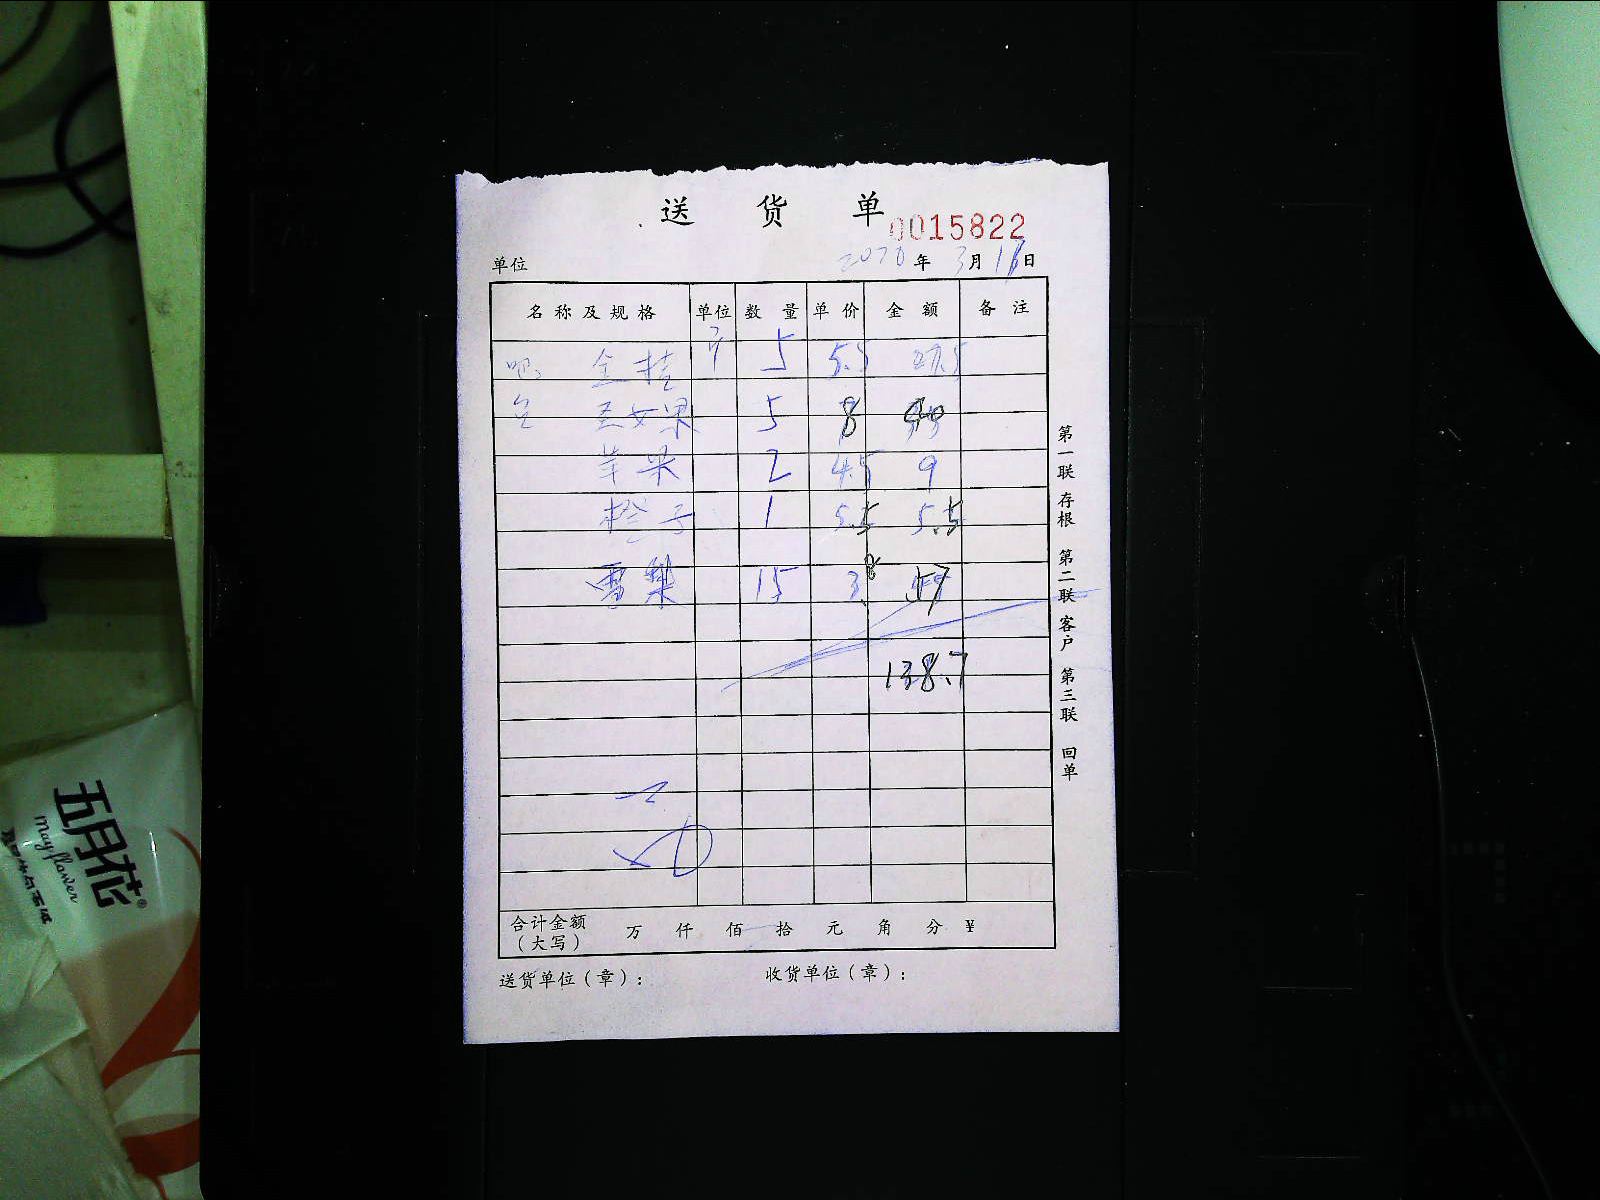 送 货 单
0015822
单位 2020 年 3月 16日
名称及规格 单位 数量 单价 金额 备注
吧 金桔 斤 5 5.5 27.5
台 圣女果 5 8 40
苹果 2 4.5 9
橙子 1 5.5 5.5
雪梨 15 3.8 57
138.7
合计金额（大写） 万 仟 佰 拾 元 角 分 ¥
送货单位（章）： 收货单位（章）：
第一联 存根 第二联 客户 第三联 回单
五月花®
Mayflower